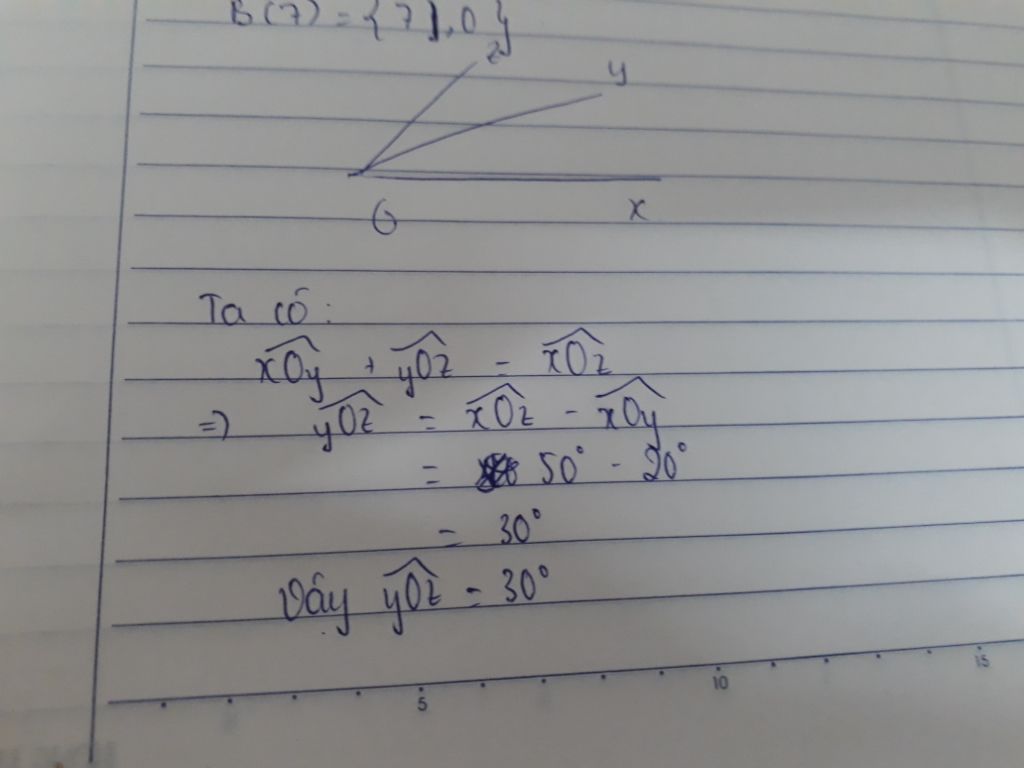 B(7) = {7], 0}
z
y
O
x
Ta có:
xOy + yOz = xOz
=> yOz = xOz - xOy
= 50° - 20°
= 30°
Vậy yOz = 30°
5 10 15